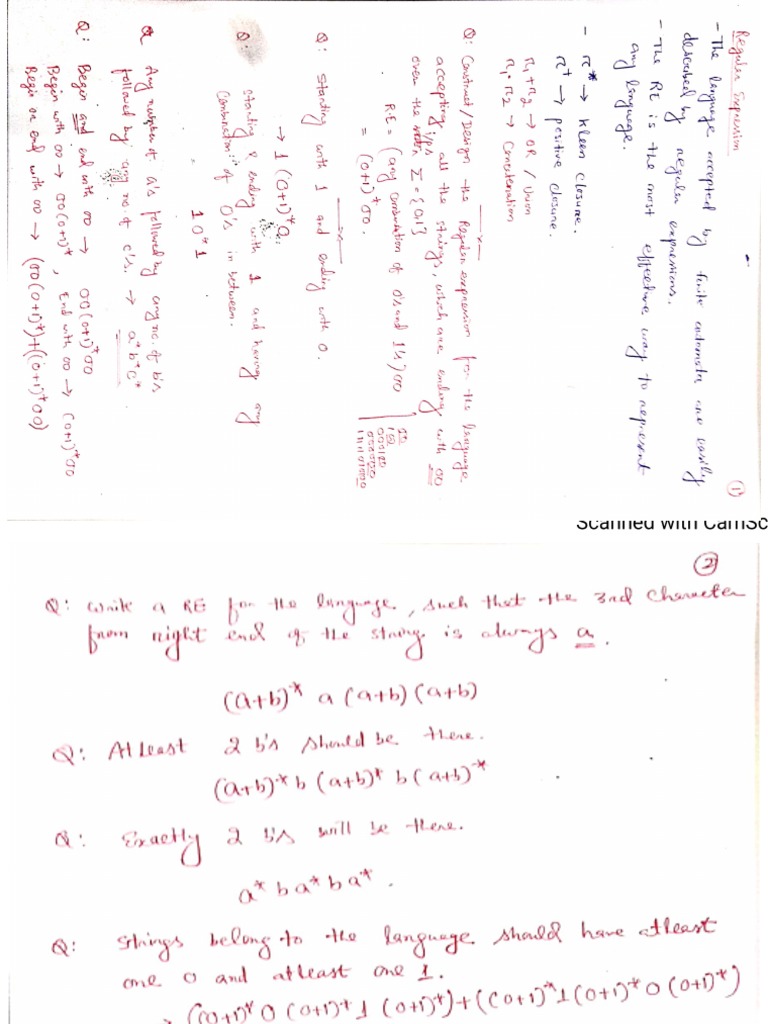 Regular Expression
①
- The language accepted by finite automata are easily
described by regular expressions.
- The RE is the most effective way to represent
any language.
- r* → kleen closure.
r⁺ → positive closure.
r₁+r₂ → OR / Union
r₁.r₂ → Concatenation
Q: Construct/Design the Regular expression for the language
accepting all the strings, which are ending with 00
over the Σ = {0,1}
i/ps
R.E = (any combination of 0's and 1's) 00
= (0+1)* 00.
00
100
000100
Q: Starting with 1 and ending with 0.
→ 1 (0+1)* 0.
Q: Starting & ending with 1 and having any
combination of 0's in between.
= 1 0* 1.
Q Any number of a's followed by any no. of b's
followed by any no. of c's. → a*b*c*
Q: Begin and end with 00 → 00 (0+1)* 00
Begin with 00 → 00 (0+1)*, End with 00 → (0+1)* 00
Begin or end with 00 → (00 (0+1)*)+((0+1)* 00)
Scanned with CamSc
②
Q: Write a RE for the language, such that the 3rd character
from right end of the string is always a.
(a+b)* a (a+b) (a+b)
Q: At least 2 b's should be there.
(a+b)* b (a+b)* b (a+b)*
Q: Exactly 2 b's will be there.
a* b a* b a*.
Q: Strings belong to the language should have atleast
one 0 and atleast one 1.
→ ((0+1)* 0 (0+1)* 1 (0+1)*)+((0+1)* 1 (0+1)* 0 (0+1)*)